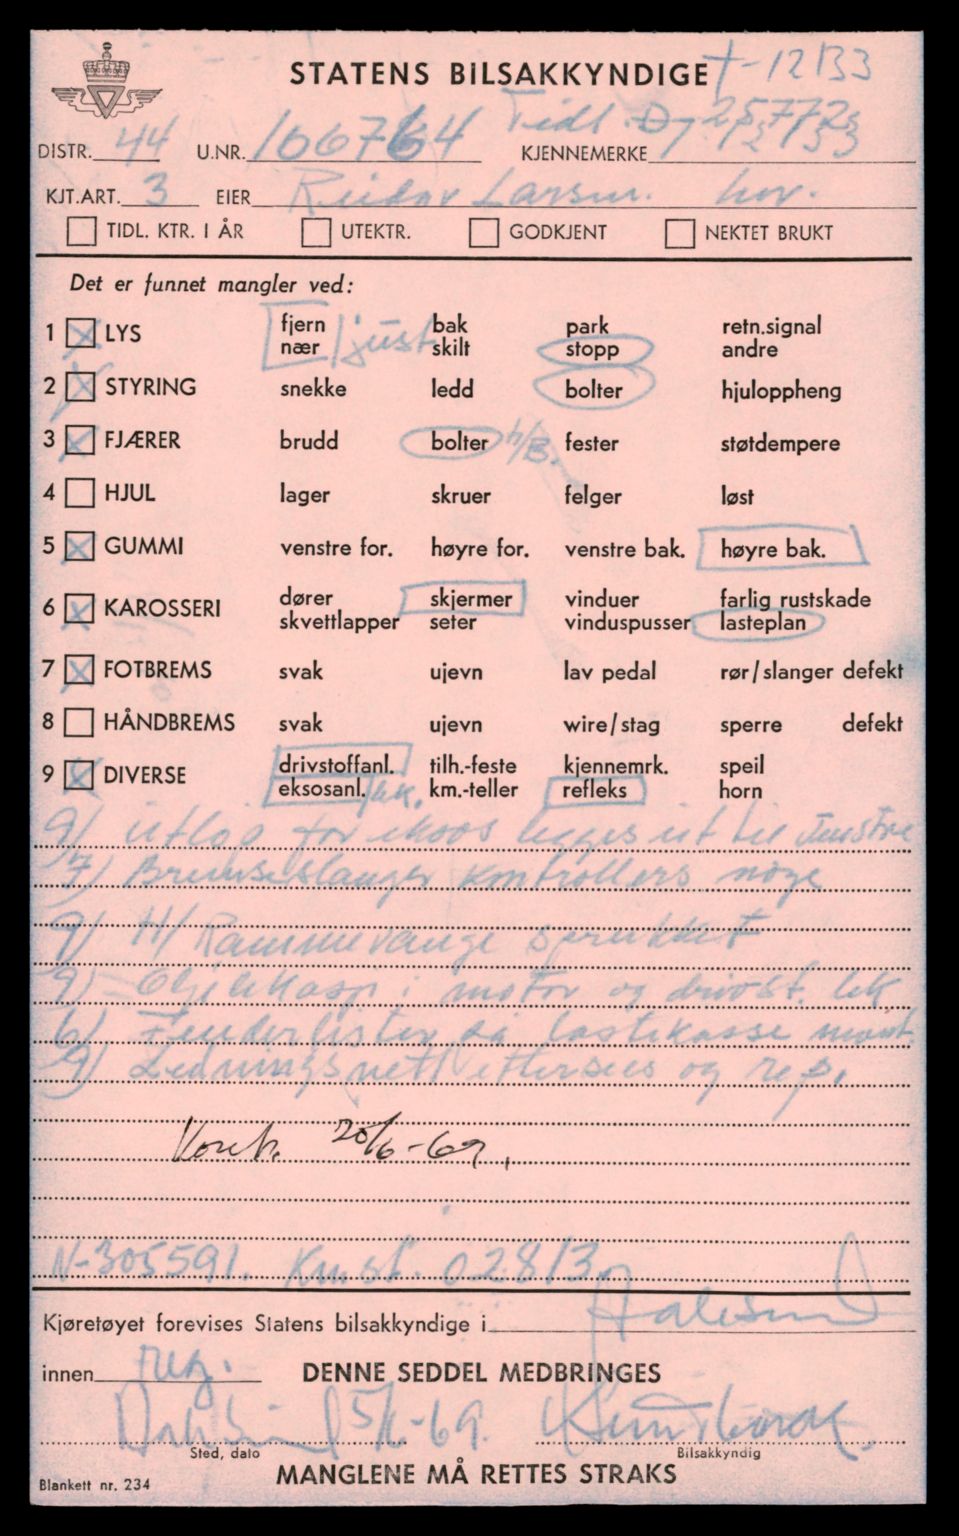 STATENS BILSAKKYNDIGE T-12133
Tidl. 25772
DISTR. 44 U.NR. 166764 KJENNEMERKE T-12133
KJT.ART. 3 EIER Reidar Larsen. her.
TIDL. KTR. I ÅR UTEKTR. GODKJENT NEKTET BRUKT
Det er funnet mangler ved:
1 LYS fjern bak park retn.signal
nær just skilt stopp andre
2 STYRING snekke ledd bolter hjuloppheng
3 FJÆRER brudd bolter h/B. fester støtdempere
4 HJUL lager skruer felger løst
5 GUMMI venstre for. høyre for. venstre bak. høyre bak.
6 KAROSSERI dører skjermer vinduer farlig rustskade
skvettlapper seter vinduspusser lasteplan
7 FOTBREMS svak ujevn lav pedal rør/slanger defekt
8 HÅNDBREMS svak ujevn wire/stag sperre defekt
9 DIVERSE drivstoffanl. tilh.-feste kjennemrk. speil
eksosanl. lek. km.-teller refleks horn
9) Utløp for eksos legges ut til venstre
7) Bremseslanger kontrollers nøye
9) H/ Rammevange sprukket
9) Oljelekasje i motor og drivst. lek
6) Fenderlister på lastekasse mont.
9) Ledningsnett ettersees og rep.
Kontr. 20/6-69.
N-305591. Km.st. 02813
Kjøretøyet forevises Statens bilsakkyndige i Aalesund
innen reg. DENNE SEDDEL MEDBRINGES
5/6-69.
Sted, dato Bilsakkyndig
Blankett nr. 234 MANGLENE MÅ RETTES STRAKS